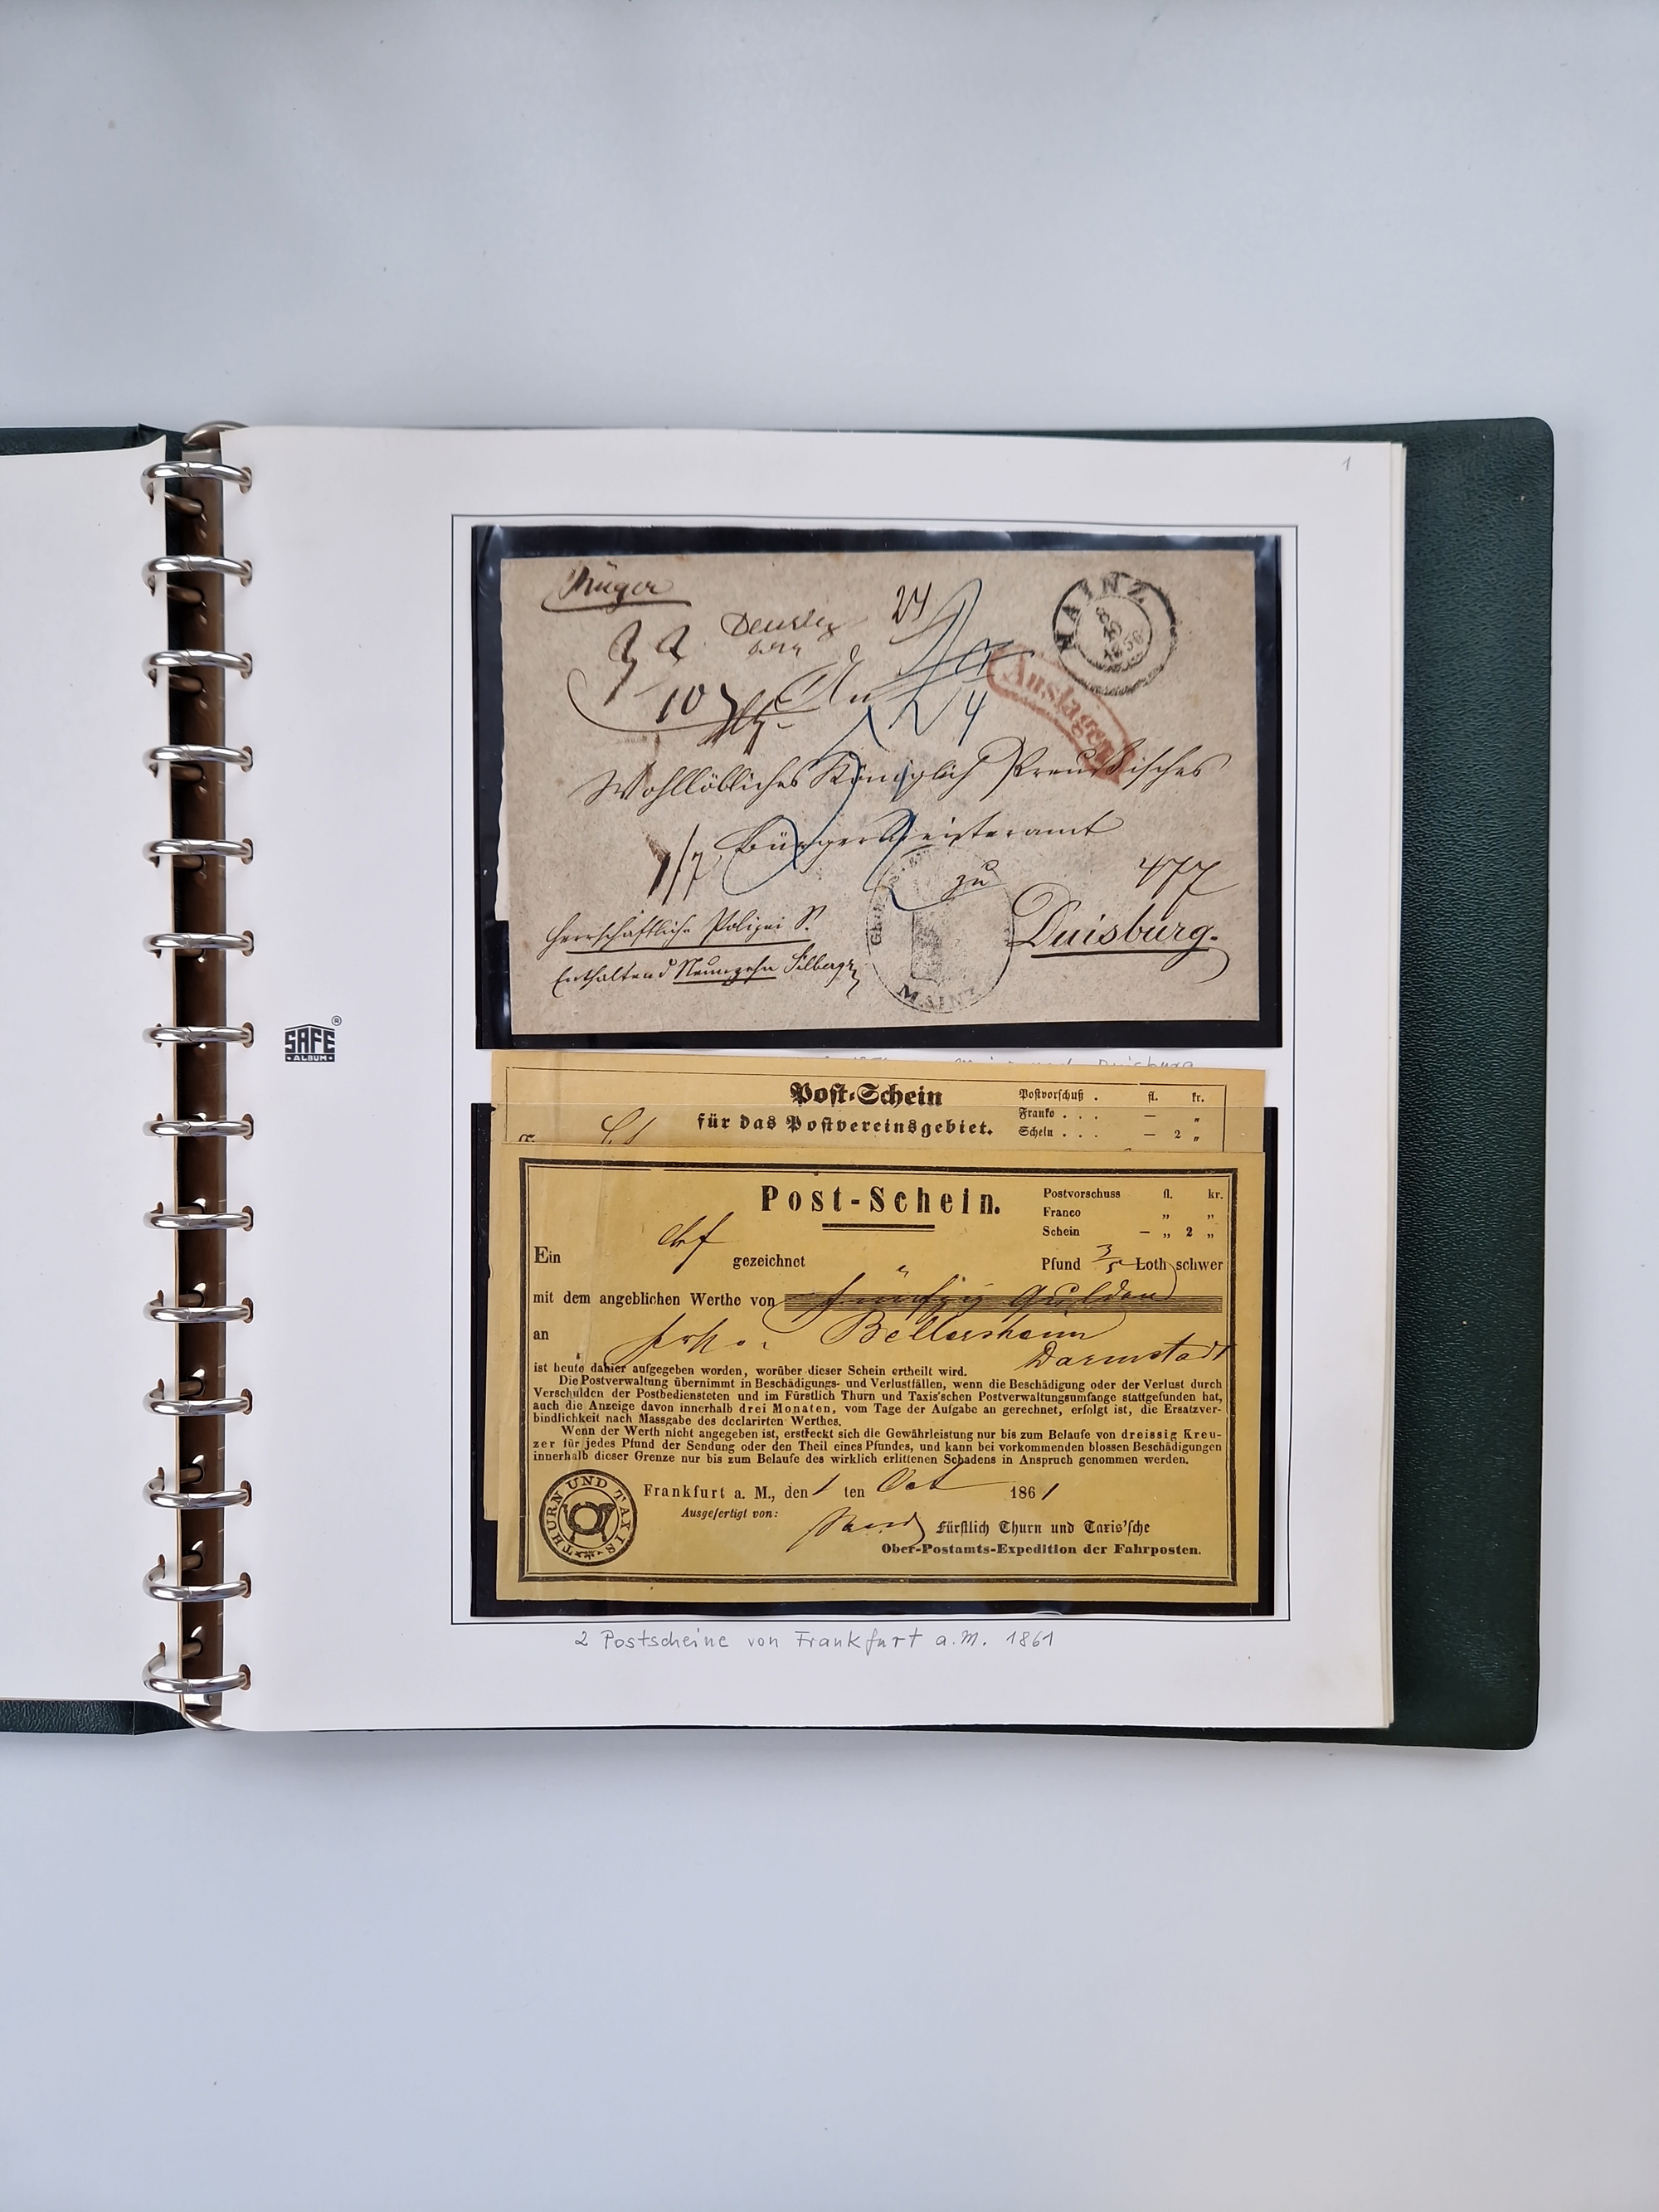 1
24
MAINZ
8
10
1856
Auslagen
10
24
Wohllöbliches Königlich Preußisches
Bürgermeisteramt
1/7
zu
477
Duisburg.
Herrschaftliche Polizei S.
Enthaltend Neunzehn Silbergr
MAINZ
SAFE®
ALBUM
Duisburg
Post-Schein
für das Postvereinsgebiet.
Postvorschuß . fl. kr.
Franko . . . — „
Schein . . . — 2 „
Post-Schein.
Postvorschuss fl. kr.
Franco „ „
Schein — „ 2 „
Ein gezeichnet Pfund 3/5 Loth schwer
mit dem angeblichen Werthe von fünfzig Gulden
an Bellersheim
Darmstadt
ist heute dahier aufgegeben worden, worüber dieser Schein ertheilt wird.
Die Postverwaltung übernimmt in Beschädigungs- und Verlustfällen, wenn die Beschädigung oder der Verlust durch
Verschulden der Postbediensteten und im Fürstlich Thurn und Taxis'schen Postverwaltungsumfange stattgefunden hat,
auch die Anzeige davon innerhalb drei Monaten, vom Tage der Aufgabe an gerechnet, erfolgt ist, die Ersatzver-
bindlichkeit nach Massgabe des declarirten Werthes.
Wenn der Werth nicht angegeben ist, erstreckt sich die Gewährleistung nur bis zum Belaufe von dreissig Kreu-
zer für jedes Pfund der Sendung oder den Theil eines Pfundes, und kann bei vorkommenden blossen Beschädigungen
innerhalb dieser Grenze nur bis zum Belaufe des wirklich erlittenen Schadens in Anspruch genommen werden.
THURN UND TAXIS
Frankfurt a. M., den 1 ten Oct 1861
Ausgefertigt von:
Fürstlich Thurn und Taxis'sche
Ober-Postamts-Expedition der Fahrposten.
2 Postscheine von Frankfurt a.M. 1861